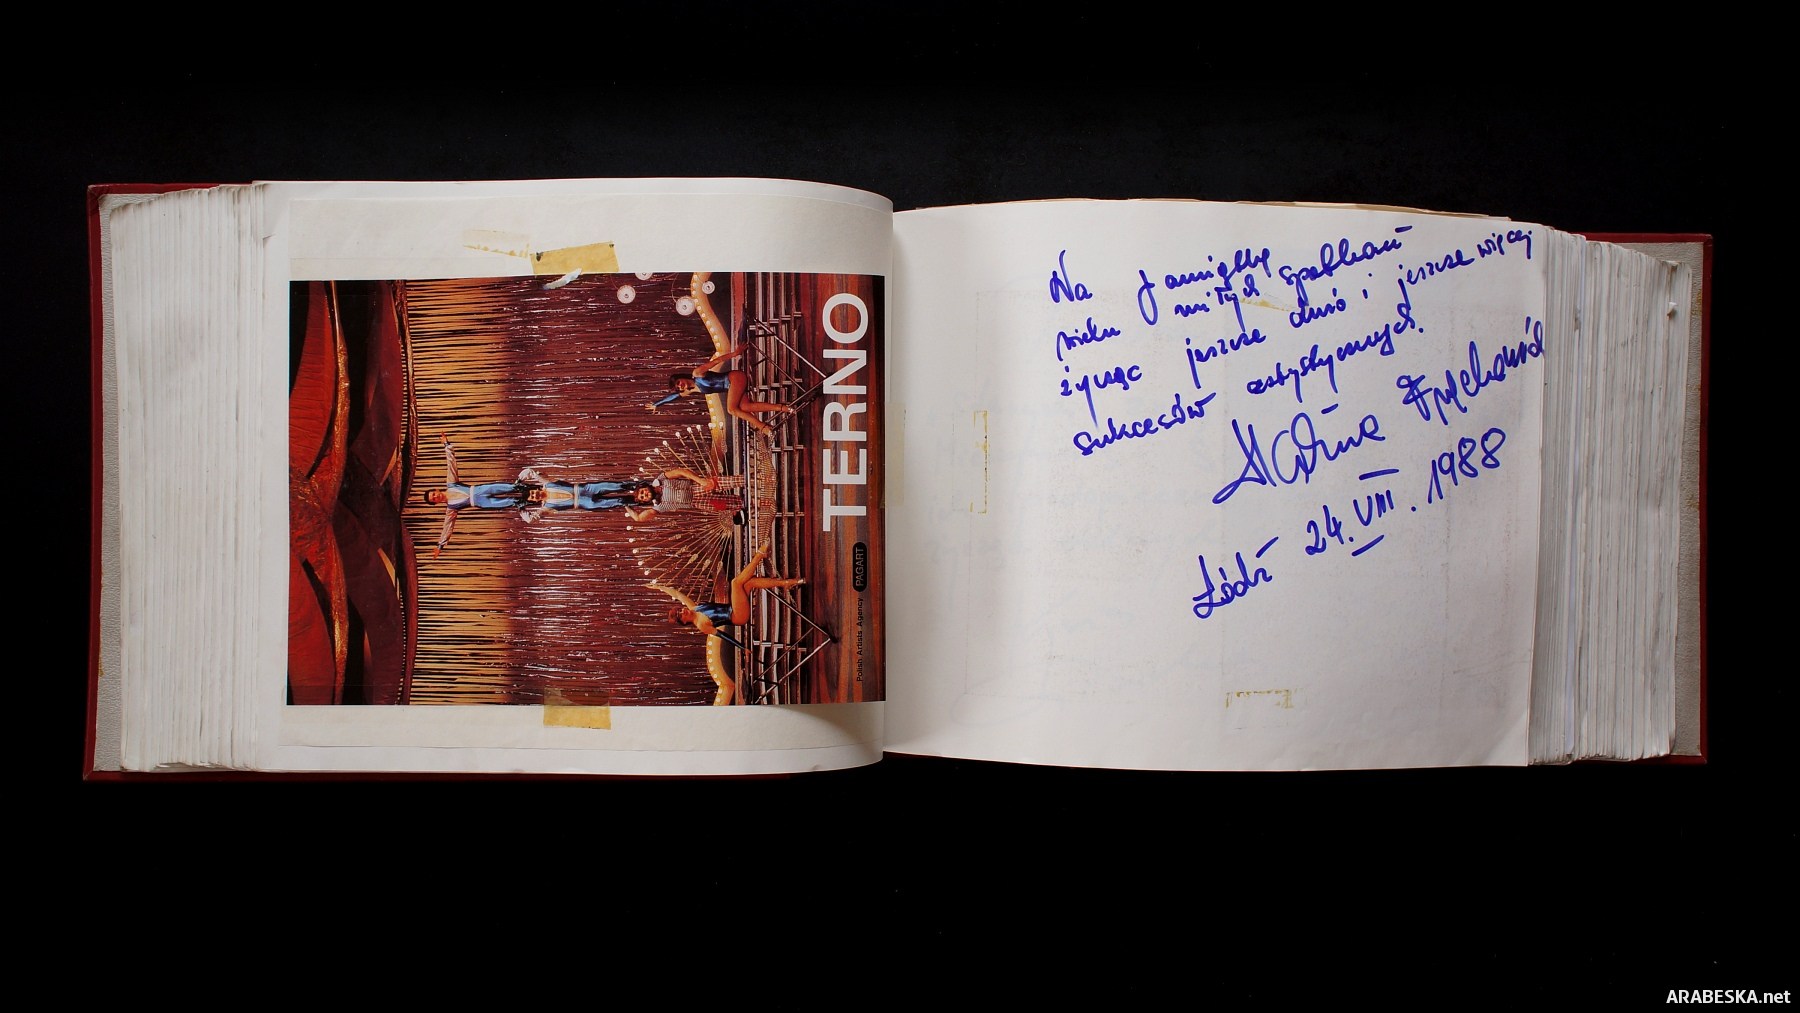 TERNO
Polish Artists Agency PAGART
Na pamiątkę
wielu miłych spotkań
życząc jeszcze dużo i jeszcze więcej
sukcesów artystycznych.
Halina
Łódź 24.VIII.1988
ARABESKA.net